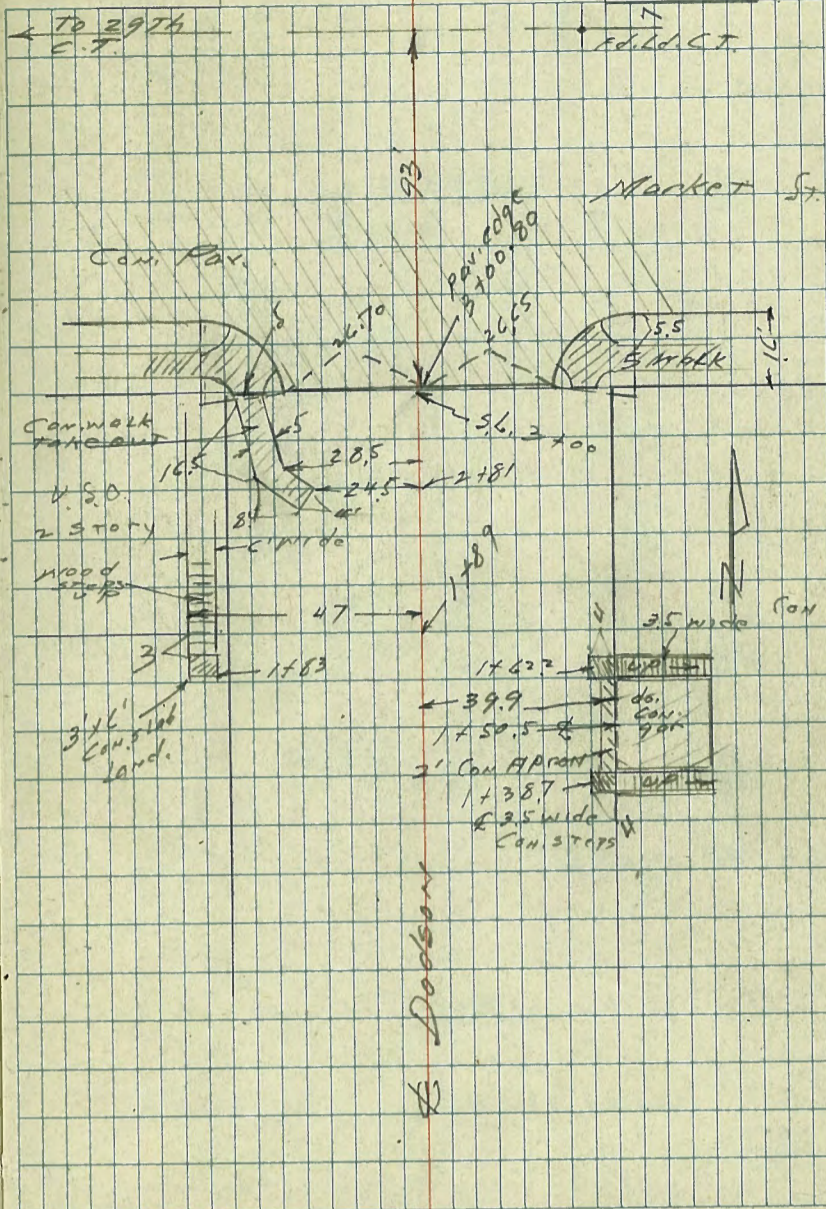 To 29Th
C.T.
7
Fd. Ld. C.T.
93'
Market St.
Con. Pav.
Pav. edge
3+00.80
26.70
26.65
5.5
5 walk
16'
S.L. 3+00
Con. walk
take out
5
28.5
16.5
24.5
2+81
V.S.O.
2 story
84
6' wide
wood
steps
up
1+89
47
3
1+83
3'x6'
Con. slab
land.
N
Con
3.5 wide
4
1+62.2
up
39.9
do.
Con.
gar
1+50.5 ⅊
2' Con Apron
1+38.7
up
⅊ 3.5 wide
Con. steps
4
⅊ Dodson